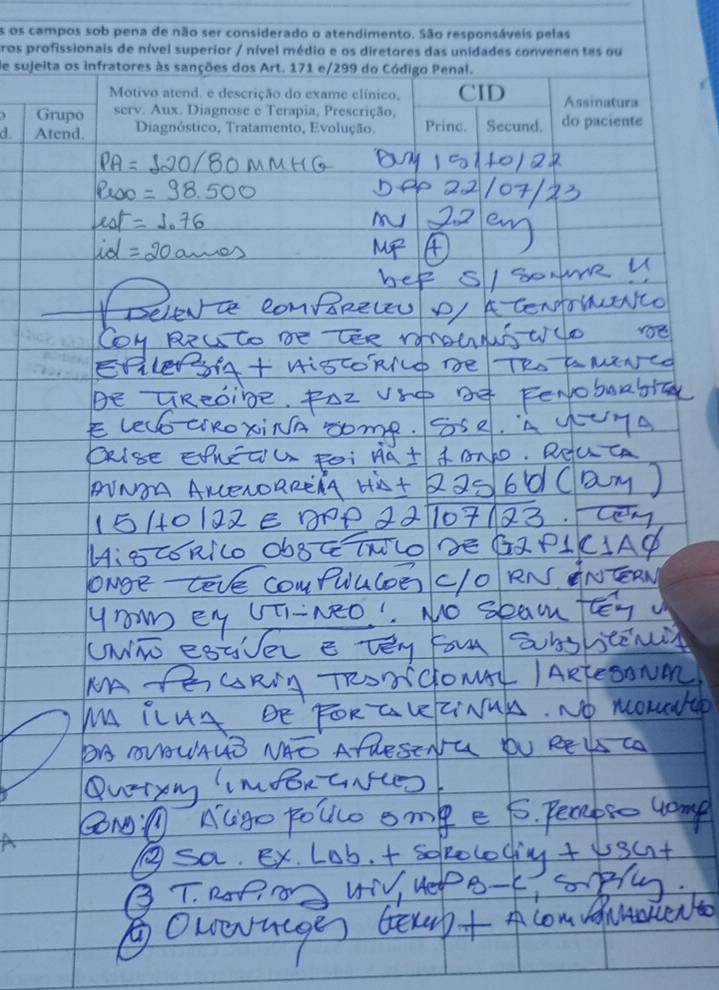 s os campos sob pena de não ser considerado o atendimento. São responsáveis pelas
ros profissionais de nível superior / nível médio e os diretores das unidades convenentes ou
e sujeita os infratores às sanções dos Art. 171 e/299 do Código Penal.
d.
Grupo
Atend.
Motivo atend. e descrição do exame clínico,
serv. Aux. Diagnose e Terapia, Prescrição,
Diagnóstico, Tratamento, Evolução.
CID
Princ. Secund.
Assinatura
do paciente
PA = 120/80 MMHG DUM 15/10/22
Peso = 98.500 DPP 22/07/23
est = 1.76 22 cm
id = 20 anos MF +
BCF S/ SONAR
PACIENTE COMPARECEU P/ ATENDIMENTO
COM RELATO DE TER DIAGNÓSTICO DE
EPILEPSIA + HISTÓRICO DE TRATAMENTO
DE TIREÓIDE. FAZ USO DE FENOBARBITAL
E LEVOTIROXINA 50mg. A ULTIMA
CRISE FOI HÁ ± 1 ANO. RELATA
AINDA AMENORREIA HÁ ± 22S (DUM)
15/10/22 E DPP 22/07/23. TEM
HISTÓRICO OBSTÉTRICO DE G2P1C1AØ
ONDE TEVE COMPLICAÇÕES C/O RN. INTERN
EM UTI-NEO. NO TEM
UNIÃO ESTÁVEL E TEM SUA SUBSISTÊNCIA
NA PESCARIA TRADICIONAL / ARTESANAL
NA ILHA DE FORTALEZINHA. NO MOMENTO
DA AVALIAÇÃO NÃO APRESENTA OU RELATA
QUEIXAS IMPORTANTES.
COND: 1 ÁCIDO FÓLICO 5mg E S. FERROSO 40mg
2 SOL. EX. LAB. + SOROLOGIAS + USG +
3 T. RÁPIDOS HIV, HEP B-C, SÍFILIS.
4 ORIENTAÇÕES GERAIS + ACOMPANHAMENTO